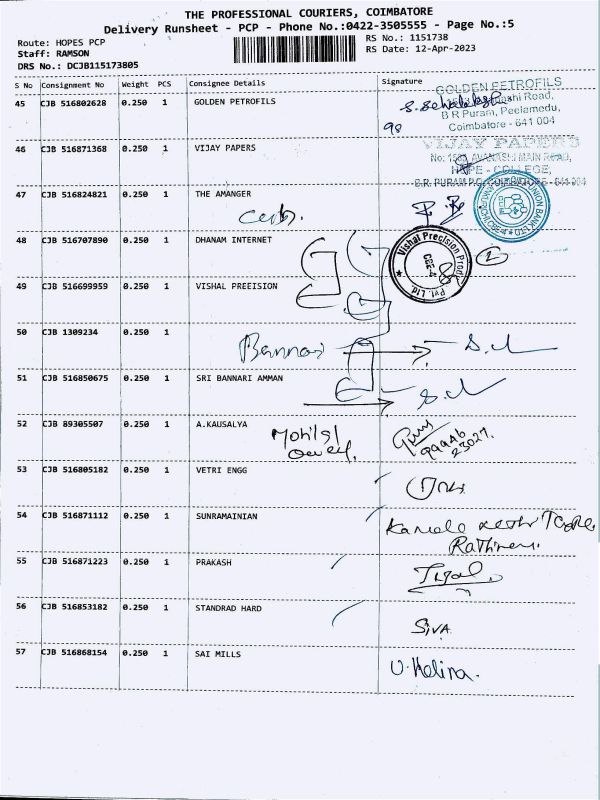 THE PROFESSIONAL COURIERS, COIMBATORE
Delivery Runsheet - PCP - Phone No.:0422-3505555 - Page No.:5
Route: HOPES PCP
RS No.: 1151738
Staff: RAMSON
RS Date: 12-Apr-2023
DRS No.: DCJB115173805
S No Consignment No Weight PCS Consignee Details Signature
45 CJB 516802628 0.250 1 GOLDEN PETROFILS
GOLDEN PETROFILS
Road,
B R Puram, Peelamedu,
Coimbatore - 641 004
98
46 CJB 516871368 0.250 1 VIJAY PAPERS
VIJAY PAPERS
No: AVANASHI MAIN ROAD,
HOPE - COLLEGE,
B.R. PURAM P.O. COIMBATORE - 641 004
47 CJB 516824821 0.250 1 THE AMANGER
UNION BANK
48 CJB 516707890 0.250 1 DHANAM INTERNET
Vishal Precision Prod Pvt. Ltd.
CBE-4
49 CJB 516699959 0.250 1 VISHAL PREEISION
50 CJB 1309234 0.250 1
Bannari
51 CJB 516850675 0.250 1 SRI BANNARI AMMAN
52 CJB 89305507 0.250 1 A.KAUSALYA
99446
23027.
53 CJB 516805182 0.250 1 VETRI ENGG
54 CJB 516871112 0.250 1 SUNRAMAINIAN
55 CJB 516871223 0.250 1 PRAKASH
56 CJB 516853182 0.250 1 STANDRAD HARD
SIVA
57 CJB 516868154 0.250 1 SAI MILLS